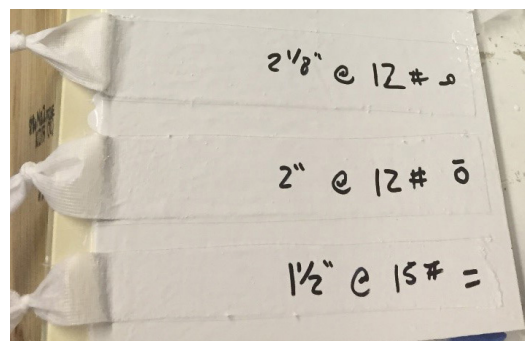 2 1/8" @ 12 #
2" @ 12 # ō
1 1/2" @ 15 # =